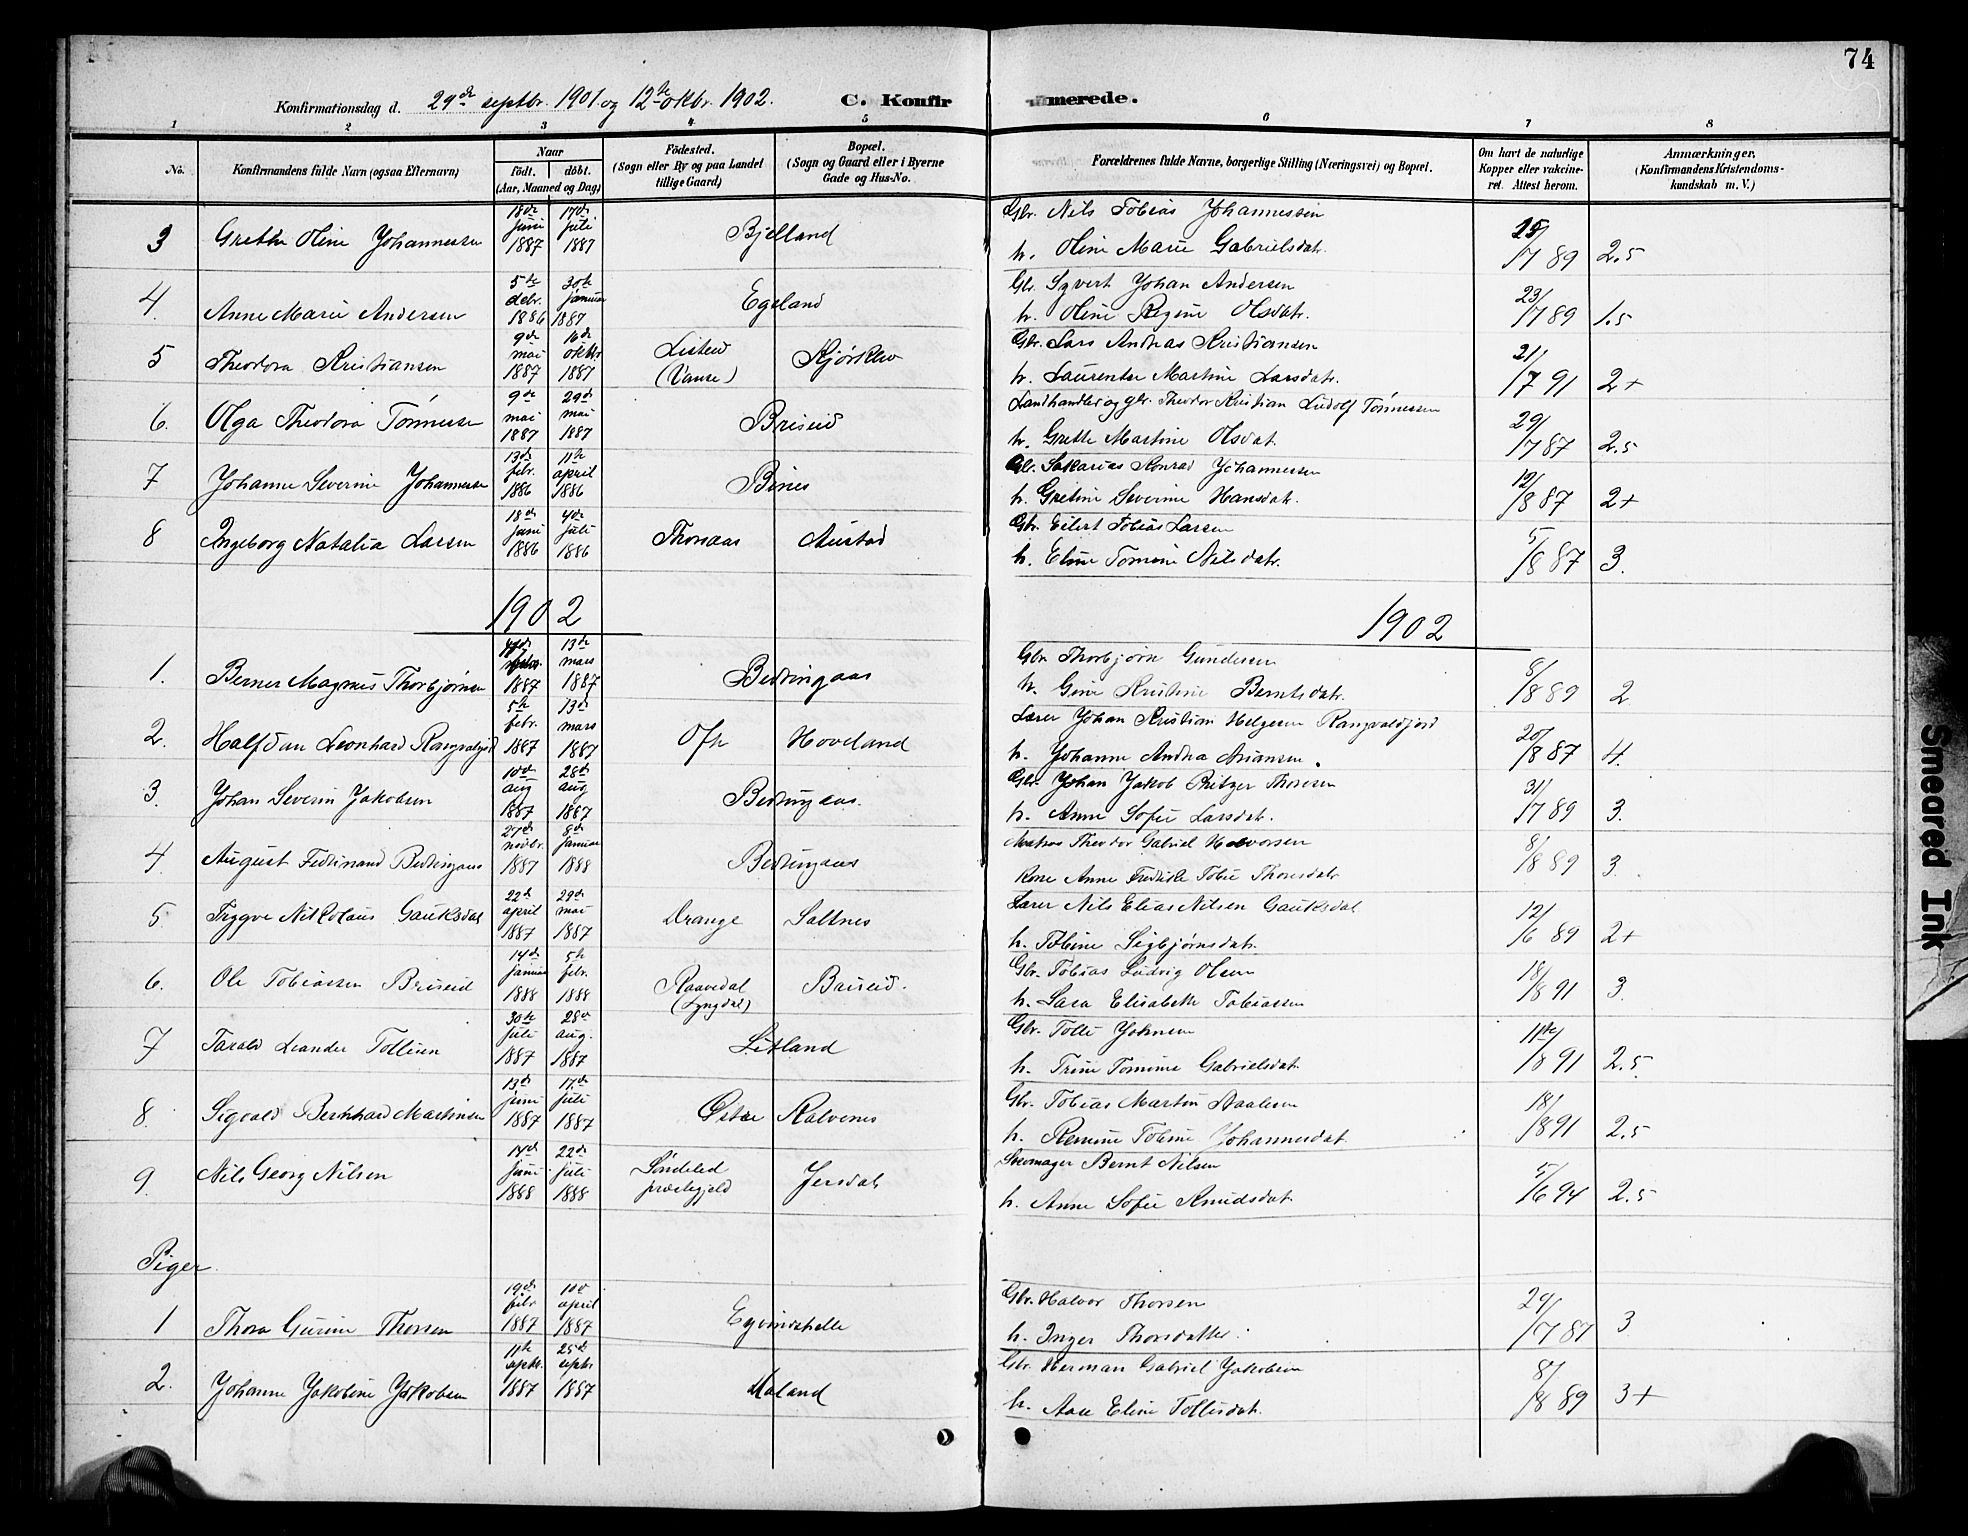 74
Konfirmationsdag d. 29de septbr. 1901 og 12te oktbr. 1902. C. Konfirmerede.
1 2 3 4 5 6 7 8
No. Konfirmandens fulde Navn (ogsaa Efternavn) Naar födt. döbt. (Aar, Maaned og Dag) Födested. (Sogn eller By og paa Landet tillige Gaard) Bopæl. (Sogn og Gaard eller i Byerne Gade og Hus-No. Forældrenes fulde Navne, borgerlige Stilling (Næringsvei) og Bopæl. Om havt de naturlige Kopper eller vakcineret. Attest herom. Anmærkninger, (Konfirmandens Kristendomskundskab m. V.)
3 Grethe Oline Johannessen 18de juni 1887 17de juli 1887 Bjelland Gbr. Nils Tobias Johannessen
h. Oline Marie Gabrielsdatr. 25/7 89 2.5
4. Anne Marie Andersen 5te debr. 1886 30te januar 1887 Egeland Gbr. Syvert Johan Andersen
h. Oline Regine Olsdatr. 23/7 89 1.5
5 Theodora Kristiansen 9de mai 1887 16de oktbr 1887 Listeid (Vanse) Kjørkleiv Gbr. Lars Andreas Kristiansen
h. Laurentse Martine Larsdatr. 21/7 91 2+
6. Olga Theodora Tønnessen 9de mai 1887 29de mai 1887 Briseid Landhandler og gbr. Theodor Kristian Ludolf Tønnessen
h. Grethe Martine Olsdat. 29/7 87 2.5
7 Johanne Severine Johannessen 13de febr. 1886 11te april 1886 Bines Gbr. Sakarias Konrad Johannessen
h. Gretine Severine Hansdat. 12/8 87 2+
8 Ingeborg Natalia Larsen 18de juni 1886 4de juli 1886 Thorsaas Austad Gbr. Eilert Tobias Larsen
h. Eline Tomine Nilsdatr. 5/8 87 3.
1902 1902
1. Berner Magnus Thorbjørnsen 1887 13de mars 1887 Bedringaas Gbr. Thorbjørn Gundersen
h. Gine Kristine Berntsdatr. 8/8 89 2
2. Halfdan Leonhard Rangvaldfjord 5te febr. 1887 13de mars 1887 Ofte Hoveland Lærer Johan Kristian Helgesen Rangvaldfjord
h. Johanne Andrea Ariansen. 20/8 87 4.
3. Johan Severin Jakobsen 10de aug 1887 28de aug 1887 Bedringaas. Gbr. Johan Jakob Britzer Thorsen
h. Anne Sofie Larsdat. 31/7 89 3.
4 August Ferdinand Bedringaas 27de novbr. 1887 8de januar 1888 Bedringaas Matros Theodor Gabriel Halvorsen
Kone Anne Fredrikke Tobie Thorsdatr 8/8 89 3.
5 Trygve Nikolaus Gauksdal 22de april 1887 29de mai 1887 Drange Saltnes Lærer Nils Elias Nilsen Gauksdal
h. Tobine Sigbjørnsdatr. 12/6 89 2+
6. Ole Tobiassen Briseid 14de januar 1888 5te febr. 1888 Raavedal (Lyngdal) Briseid. Gbr. Tobias Ludvig Olsen
h. Sara Elisabeth Tobiassen 18/8 91 3.
7 Tarald Leander Tollisen 30te juli 1887 28de aug. 1887 Litland Gbr. Tolli Johnsen
h. Trine Tomine Gabrielsdat. 11te/8 91 2.5
8. Sigvald Bernhard Martinsen 13de juni 1887 17de juli 1887 Østre Kalvenes Gbr. Tobias Martin Aaalesen
h. Remine Tobine Johannesdat. 18/8 91 2.5
9. Nils Georg Nilsen 14de juni 1888 22de juli 1888 Søndeled præstegjeld Jersdal Skomager Bernt Nilsen
h. Anne Sofie Knudsdat. 5/6 94 2.5
Piger.
1 Thora Gurine Thorsen 19de febr 1887 10de april 1887 Eyvindshelle Gbr. Halvor Thorsen
h. Inger Thorsdatter. 29/7 87 3
2. Johanne Jakobine Jakobsen 11te septr. 1887 25de septr 1887 Maland Gbr. Herman Gabriel Jakobsen
h. Aase Eline Tollisdat. 8/8 89 3+
Smeared Ink